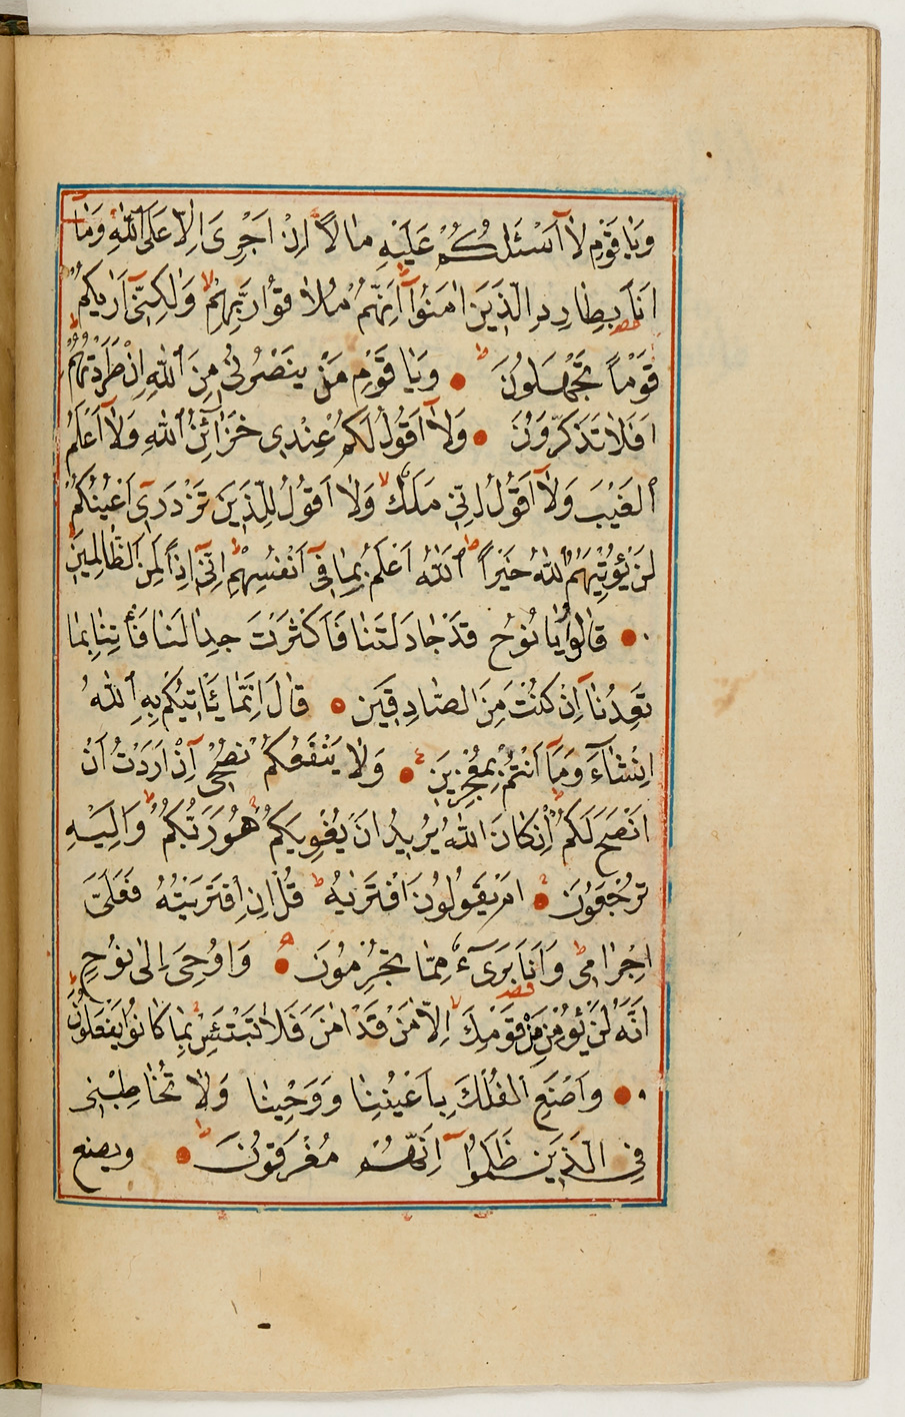 وَيَا قَوْمِ لَا آَسْئَلُكُمْ عَلَيْهِ مَالًا اِنْ اَجْرِىَ اِلَّا عَلَى اللّٰهِ وَمَا
اَنَا بِطَارِدِ الَّذِينَ اٰمَنُوا اِنَّهُمْ مُلَاقُوا رَبِّهِمْ وَلٰكِنِّى اَرٰيكُمْ
قَوْمًا تَجْهَلُونَ وَيَا قَوْمِ مَنْ يَنْصُرُنِى مِنَ اللّٰهِ اِنْ طَرَدْتُهُمْ
اَفَلَا تَذَكَّرُونَ وَلَا اَقُولُ لَكُمْ عِنْدِى خَزَائِنُ اللّٰهِ وَلَا اَعْلَمُ
الْغَيْبَ وَلَا اَقُولُ اِنِّى مَلَكٌ وَلَا اَقُولُ لِلَّذِينَ تَزْدَرِى اَعْيُنُكُمْ
لَنْ يُؤْتِيَهُمُ اللّٰهُ خَيْرًا اَللّٰهُ اَعْلَمُ بِمَا فِى اَنْفُسِهِمْ اِنِّى اِذًا لَمِنَ الظَّالِمِينَ
قَالُوا يَا نُوحُ قَدْ جَادَلْتَنَا فَاَكْثَرْتَ جِدَالَنَا فَأْتِنَا بِمَا
تَعِدُنَا اِنْ كُنْتَ مِنَ الصَّادِقِينَ قَالَ اِنَّمَا يَأْتِيكُمْ بِهِ اللّٰهُ
اِنْ شَاءَ وَمَا اَنْتُمْ بِمُعْجِزِينَ وَلَا يَنْفَعُكُمْ نُصْحِى اِنْ اَرَدْتُ اَنْ
اَنْصَحَ لَكُمْ اِنْ كَانَ اللّٰهُ يُرِيدُ اَنْ يُغْوِيَكُمْ هُوَ رَبُّكُمْ وَاِلَيْهِ
تُرْجَعُونَ اَمْ يَقُولُونَ افْتَرٰيهُ قُلْ اِنِ افْتَرَيْتُهُ فَعَلَىَّ
اِجْرَامِى وَاَنَا بَرِىءٌ مِمَّا تُجْرِمُونَ وَاُوحِىَ اِلٰى نُوحٍ
اَنَّهُ لَنْ يُؤْمِنَ مِنْ قَوْمِكَ اِلَّا مَنْ قَدْ اٰمَنَ فَلَا تَبْتَئِسْ بِمَا كَانُوا يَفْعَلُونَ
وَاصْنَعِ الْفُلْكَ بِاَعْيُنِنَا وَوَحْيِنَا وَلَا تُخَاطِبْنِى
فِى الَّذِينَ ظَلَمُوا اِنَّهُمْ مُغْرَقُونَ
ويصنع